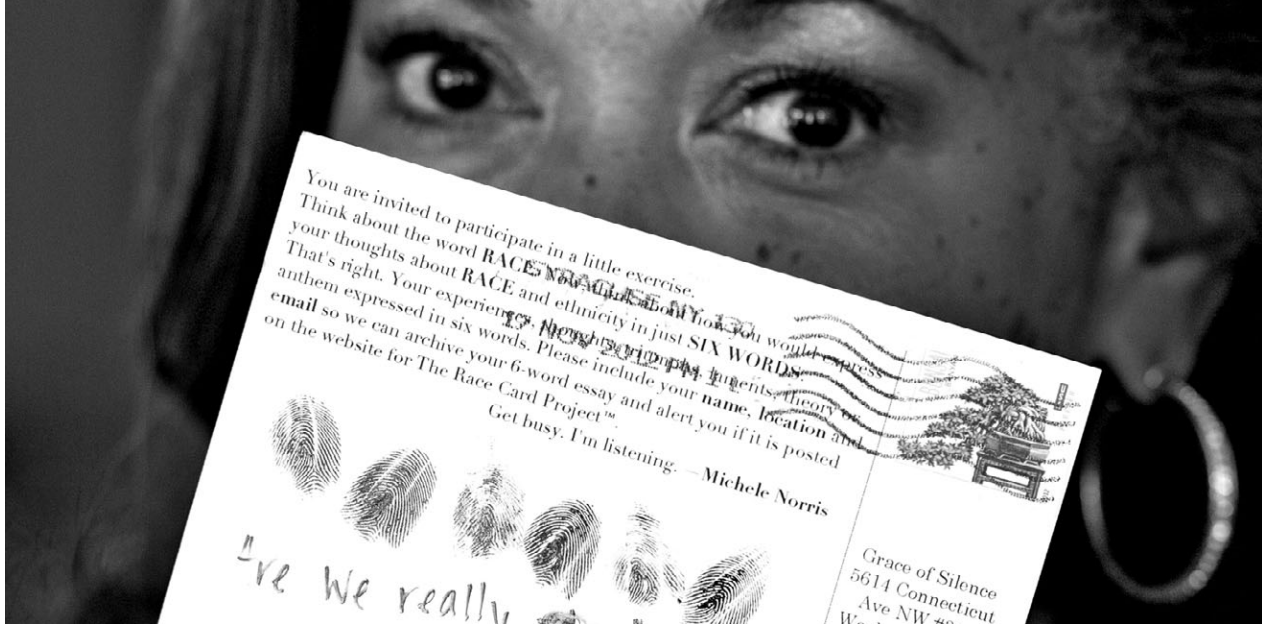 You are invited to participate in a little exercise.
Think about the word RACE. about how you would express
your thoughts about RACE and ethnicity in just SIX WORDS.
That's right. Your experiences, thoughts, triumphs, laments, theory or
anthem expressed in six words. Please include your name, location and
email so we can archive your 6-word essay and alert you if it is posted
on the website for The Race Card Project™.
Get busy. I'm listening. —Michele Norris
SYRACUSE NY 130
17 NOV 2012 PM 1 L
Are we really
Grace of Silence
5614 Connecticut
Ave NW